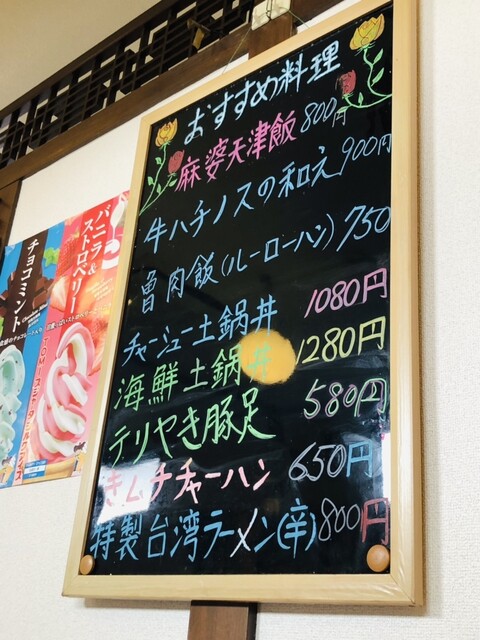 おすすめ料理
麻婆天津飯 800円
牛ハチノスの和え 900円
魯肉飯(ルーローハン) 750
チャーシュー土鍋丼 1080円
海鮮土鍋丼 1280円
テリヤき豚足 580円
きムチチャーハン 650円
特製台湾ラーメン(辛) 800円
バニラ&
ストロベリー
チョコミント